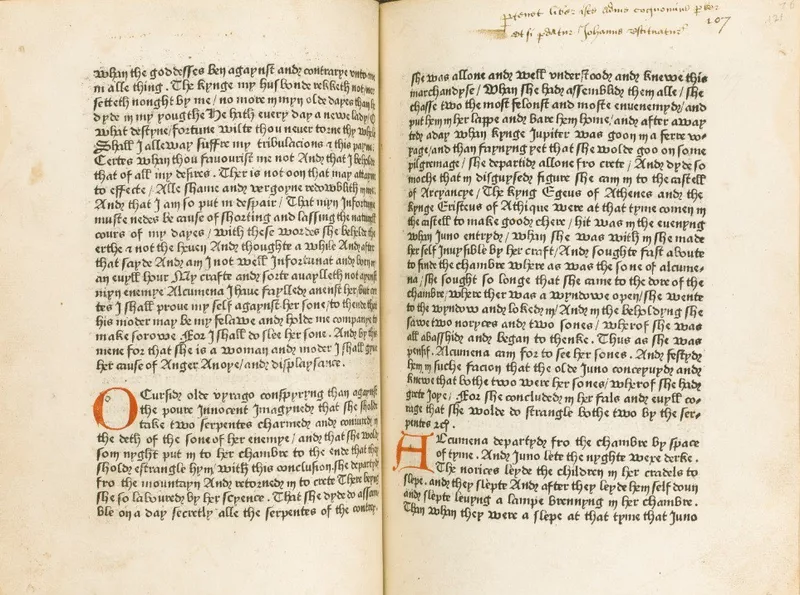 whan the goddesses ben agaynst and contrarye vnto me
in alle thing. The kynge my husbonde rekketh not/ne
setteth nought by me/ no more in myn olde dayes than he
dyde in my yougthe He hath every day a newe lady/O
what destyne/fortune wilte thou never torne thy whele
Shall I alleway suffre my tribulacions & this payne
Certes whan thou favourist me not And that I beholde
that of all my desires. Ther is not oon that may attayne
to effecte/ Alle shame and vergoyne redowblith in me.
And that I am so put in despair/ That myn Infortune
muste nedes be cause of shorting and lassing the naturell
cours of my dayes/ with these wordes she behelde the
erthe & not the heven And thoughte a while And after
that sayde And am I not well Infortunat and born in
an euyll hour My crafte and sorte auaylleth not ayenst
myn enemye Alcumena I have faylled anenst her/but on
tes I shall prove my self agaynst her sone/to thende that
his moder may be my felawe and holde me companye to
make sorowe For I shall do slee her sone. And by this
mene for that she is a woman and moder I shall gyve
her cause of Anger Anoye/and displaysance.
O Cursid olde vyrago conspyryng than agaynst
the poure Innocent Imagyned that she sholde
take two serpentes charmed and coniured in
the deth of the sone of her enemye/ and that she wold
som nyght put in to her chambre to the ende that they
sholde estrangle hym with this conclusion.she departed
fro the mountayn And retorned in to crete There beyng
she so laboured by her scyence. That she dyde do assam
ble on a day secretly alle the serpentes of the contrey.
107
she was allone and well vnderstood and knewe this
marchandyse/ Whan she had assemblid them alle/ she
chasse two the most felonst and moste enuenemyd/and
put hem in her lappe and bare hem home/and after away
ted a day whan kynge Jupiter was goon in a ferre vo-
yage/and than faynyng yet that she wolde goo on some
pilgremage/ she departid allone fro crete/ And dyde so
moche that in disguysed figure she cam in to the castell
of Arcyancye/ The kyng Egeus of Athenes and the
kynge Eristeus of Athique were at that tyme comen in
the castell to make good chere/ hit was in the euenyng
whan Juno entryd/ whan she was with in she made
her self Inuysible by her craft/And sought fast aboute
to finde the chambre where as was the sone of alcume-
na/she sought so longe that she came to the dore of the
chambre/where ther was a wyndowe open/she wente
to the wyndowe and loked in/And in the beholdyng she
sawe two noryces and two sones/ wherof she was
all abasshid and began to thenke. Thus as she was
pensif. Alcumena cam for to see her sones. And festyd
hem in suche facion that the olde Juno conceyuyd and
knewe that bothe two were her sones/wherof she had
grete Joye/ For she concluded in her fals and euyll co-
rage that she wolde do strangle bothe two by the ser-
pentes &c.
Alcumena departyd fro the chambre by space
of tyme. And Juno lete the nyghte wexe derke.
The norices leyde the children in her cradels to
slepe. and they slepte And after they leyde hem self doun
and slepte leuyng a lampe brennyng in her chambre.
Than whan they were a slepe at that tyme that Juno